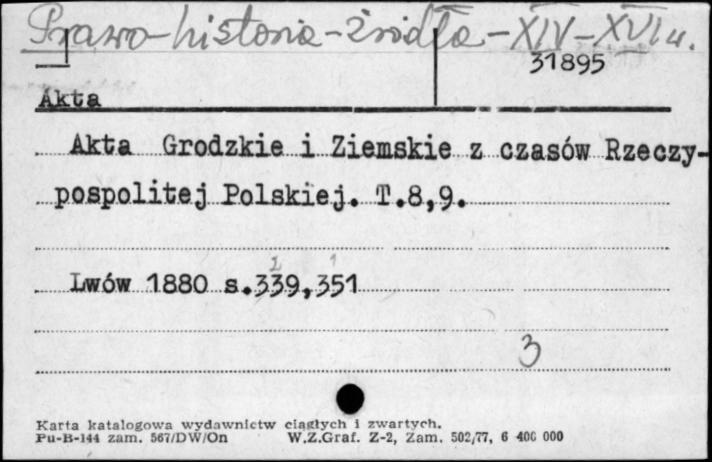 Prawo-historia-źródła-XIV-XVI w.
31895
Akta
Akta Grodzkie i Ziemskie z czasów Rzeczy-
pospolitej Polskiej. T.8,9.
Lwów 1880 s.339,351
3
Karta katalogowa wydawnictw ciągłych i zwartych.
Pu-B-144 zam. 567/DW/On W.Z.Graf. Z-2, Zam. 502/77, 6 400 000